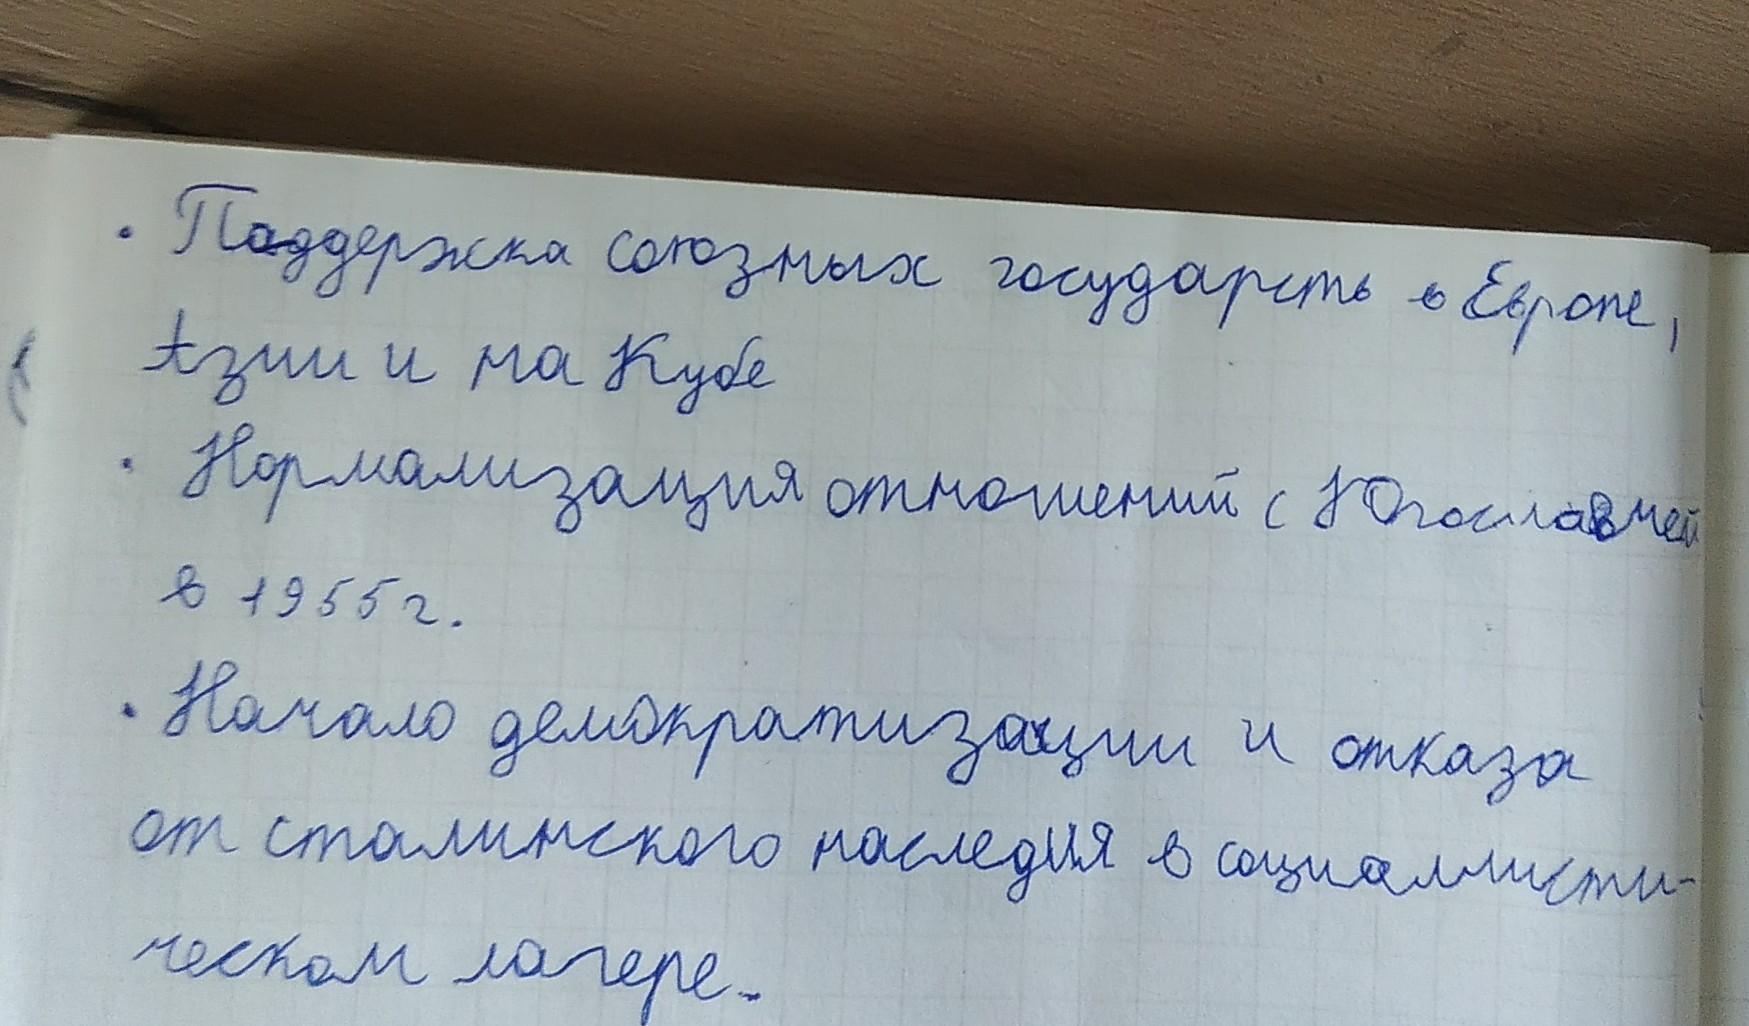 • Поддержка союзных государсть в Европе,
Азии и на Кубе
• Нормализация отношений с Югославией
в 1955г.
• Начало демократизации и отказа
от сталинского наследия в социалисти-
ческом лагере.